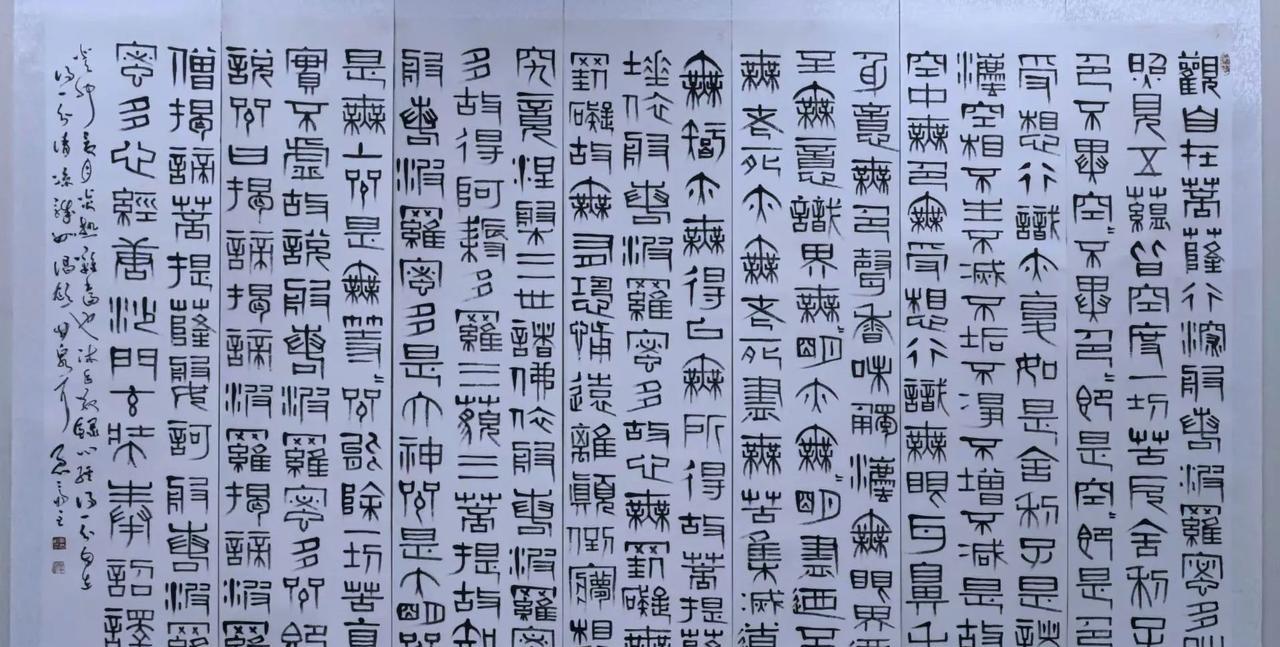 觀自在菩薩行深般若波羅蜜多
照見五蘊皆空度一切苦厄舍利子
色不異空=不異色=即是空=即是色
受想行識亦復如是舍利子是諸
法空相不生不滅不垢不淨不增不減是故
空中無色無受想行識無眼耳鼻舌
身意無色聲香味觸法無眼界迺
至無意識界無=明亦無=明盡迺至
無老死亦無老死盡無苦集滅道
無智亦無得以無所得故菩提薩
埵依般若波羅蜜多故心無罣礙無
罣礙故無有恐怖遠離顛倒夢想
究竟涅槃三世諸佛依般若波羅蜜
多故得阿耨多羅三藐三菩提故知
般若波羅蜜多是大神咒是大明咒
是無上咒是無等=咒能除一切苦真
實不虛故說般若波羅蜜多咒即
說咒曰揭諦揭諦波羅揭諦波羅
僧揭諦菩提薩婆訶般若波羅
蜜多心經唐沙門玄奘奉詔譯